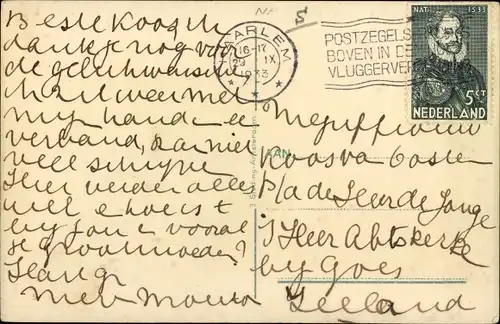 Beste Koosje
dank je nog voor
de gelukwenschen
ik zit weer met
mijn hand in
verband, kan niet
veel schrijven
Hier verder alles
wel hoe is t
bij jou en vooral
je grootmoeder?
HAARLEM
16-17
29 IX
1933
7
POSTZEGELS
BOVEN IN DE
VLUGGER VER
NAT. 1533
5 CT
NEDERLAND
AAN
Mejuffrouw
Koos van Oosten
P/a de Heer de Jonge
's Heer Abtskerke
by Goes
Zeeland